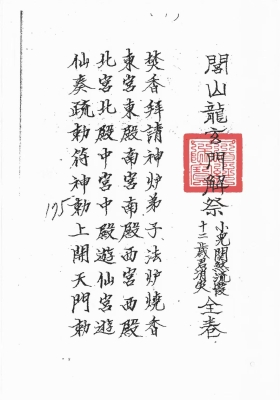 閭山龍玄門解祭
小兒關煞流霞
十二歲君消灾
全卷
焚香拜請神炉弟子法炉燒香
東宮東殿南宮南殿西宮西殿
北宮北殿中宮中殿遊仙宮遊
仙奏疏勅符神勅上開天門勅
195